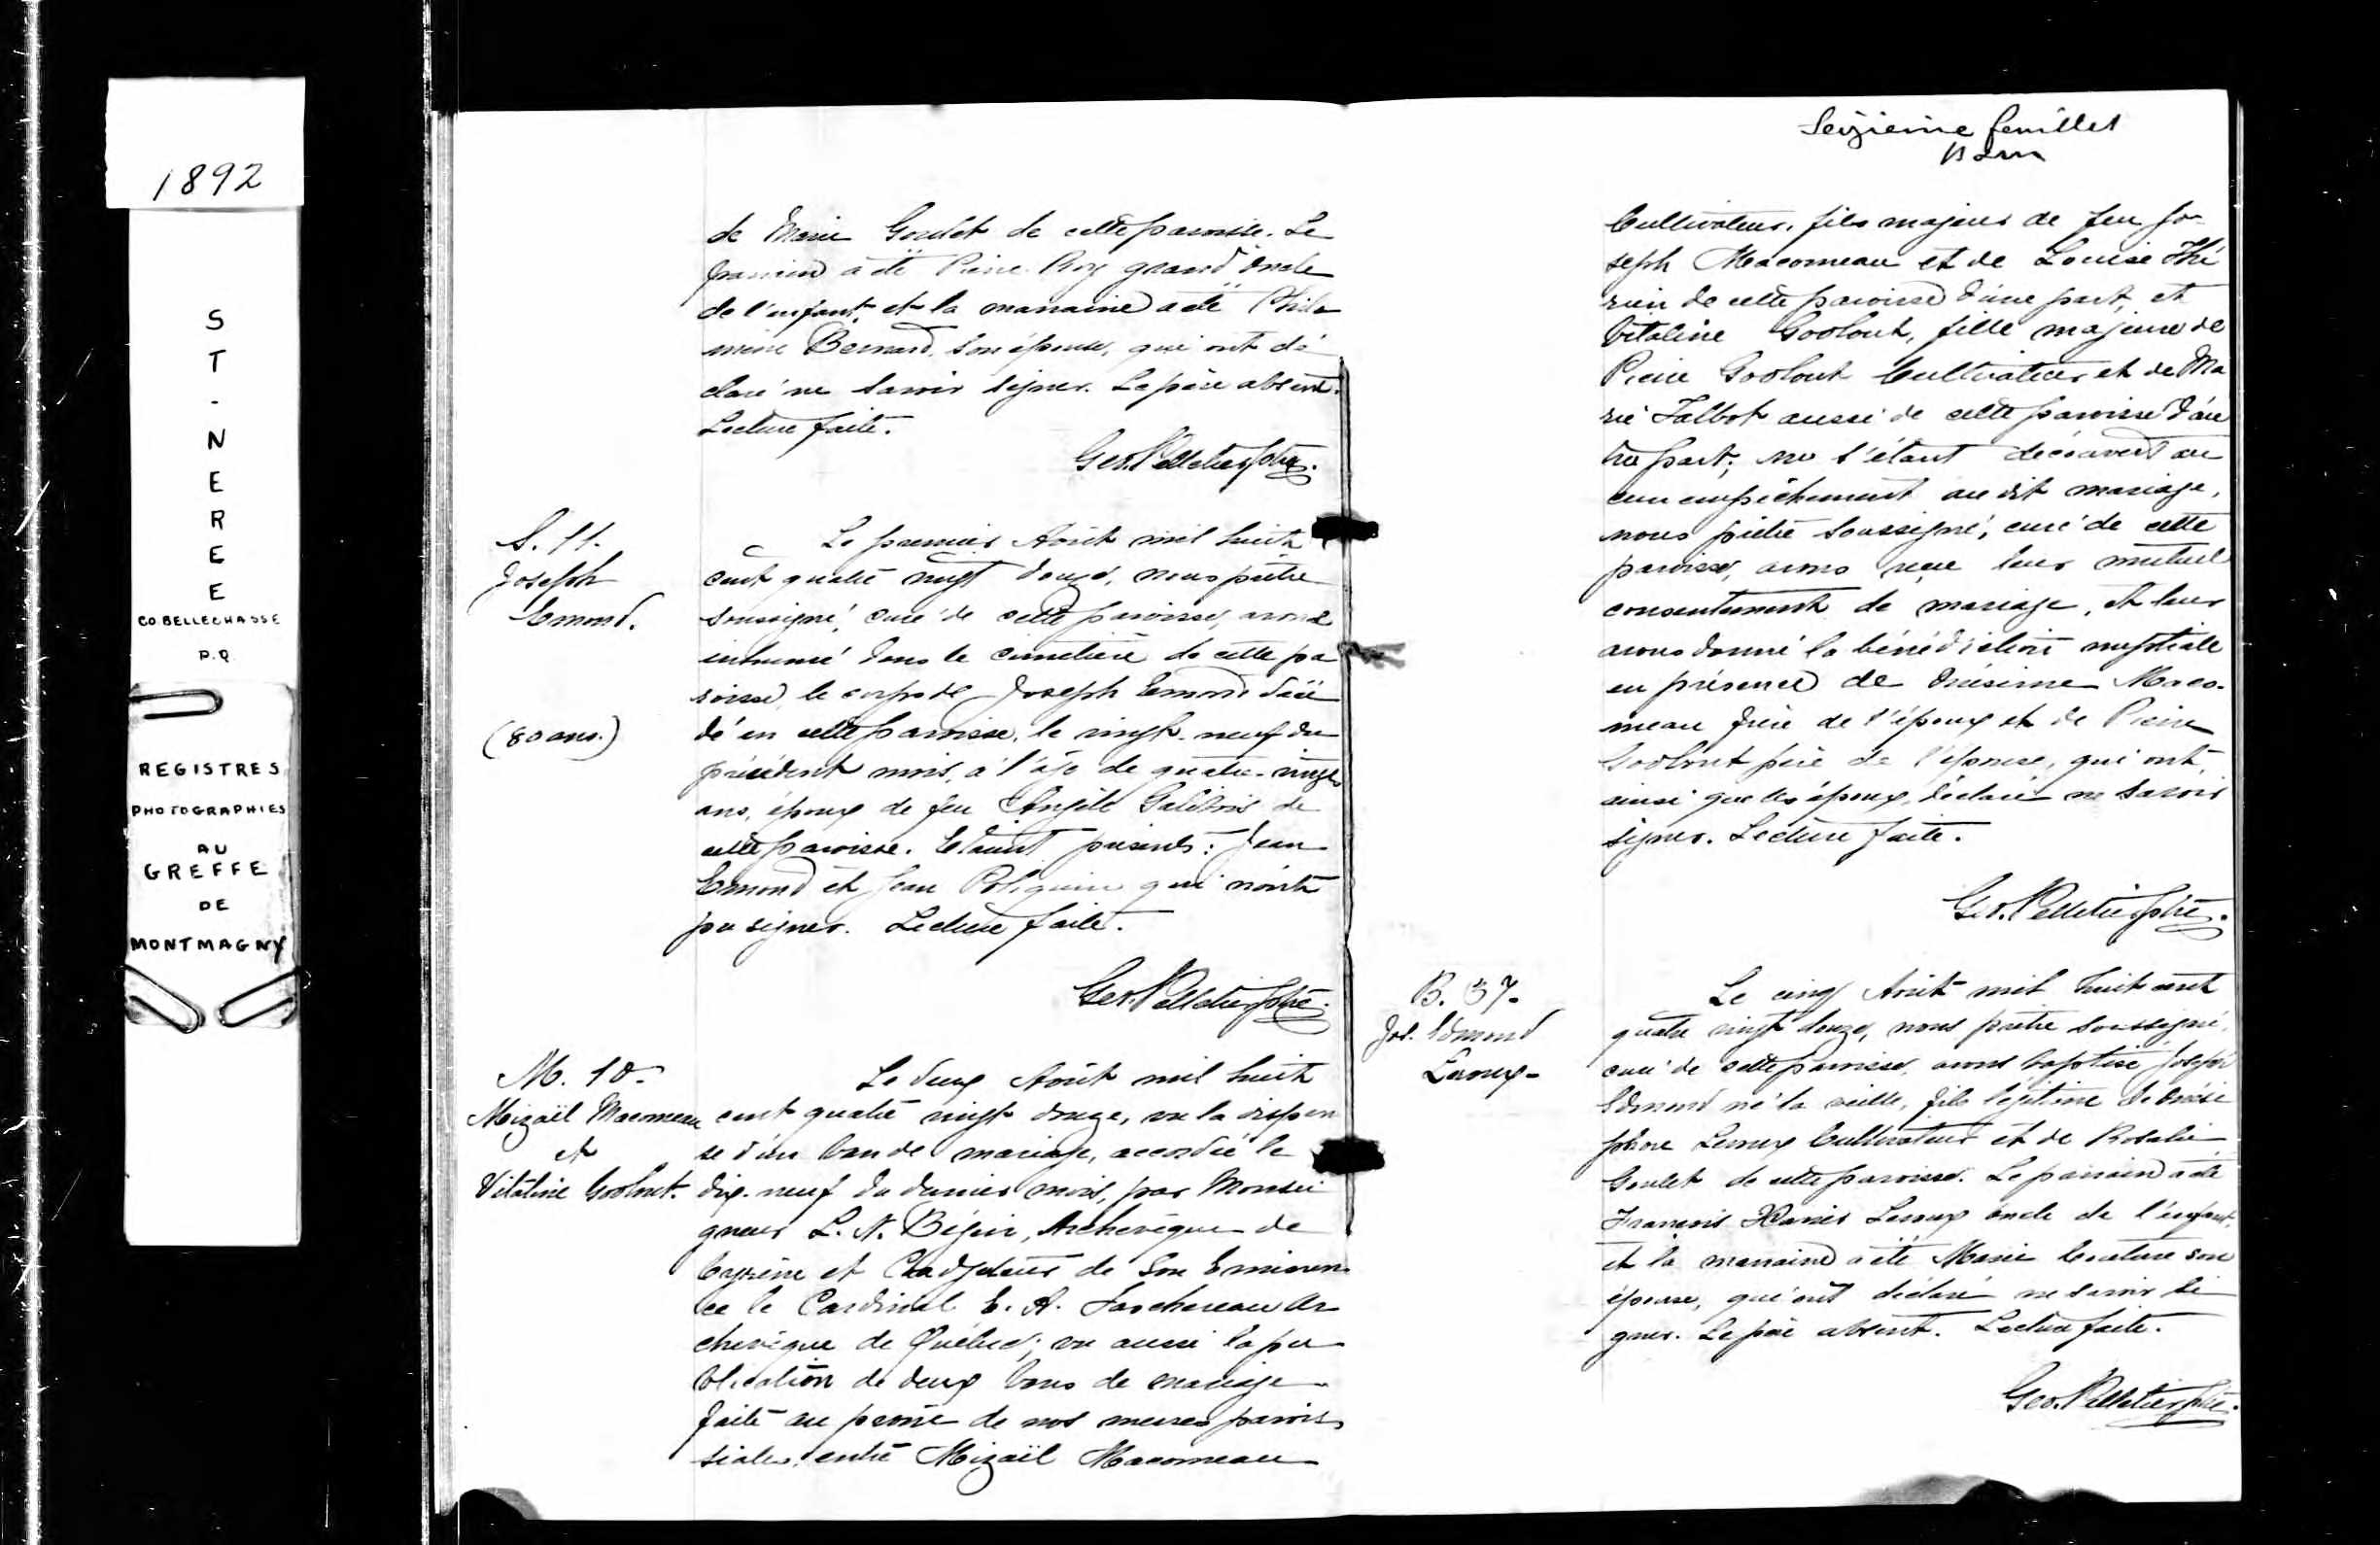 1892
ST-NEREE
CO BELLECHASSE
P.Q.
REGISTRES
PHOTOGRAPHIES
AU
GREFFE
DE
MONTMAGNY
de Marie Goulet de cette paroisse. Le
parrain a été Pierre Roy grand oncle
de l'enfant, et la marraine a été Philo
mène Bernard, son épouse, qui ont dé
claré ne savoir signer. Le père absent.
Lecture faite.
Geo. Pelletier Ptre.
S. 11.
Joseph
Emond.
(80 ans.)
Le premier Août mil huit
cent quatre vingt douze, nous prêtre
soussigné, curé de cette paroisse, avons
inhumé dans le cimetière de cette pa
roisse, le corps de Joseph Emond décé
dé en cette paroisse, le vingt-neuf du
précédent mois, à l'âge de quatre-vingts
ans, époux de feu Angèle Galibois de
cette paroisse. Etaient présents: Jean
Emond et Jean Poliquin qui n'ont
pu signer. Lecture faite.
Geo. Pelletier Ptre.
M. 10.
Mizaël Macomeau
et
Vitaline Goolout.
Le deux Août mil huit
cent quatre vingt douze, vu la dispen
se d'un ban de mariage, accordée le
dix-neuf du dernier mois, par Monsei
gneur L. N. Bégin, Archevêque de
Cyrène et Coadjuteur de Son Eminen
ce le Cardinal E. A. Taschereau Ar
chevêque de Québec; vu aussi la pu
blication de deux bans de mariage
faite au prône de nos messes parois
siales, entre Mizaël Macomeau
Seizième feuillet
Cultivateur, fils majeur de feu Jo-
seph Macomeau et de Louise Thé
rien de cette paroisse d'une part, et
Vitaline Goolout, fille majeure de
Pierre Goolout Cultivateur et de Ma
rie Talbot aussi de cette paroisse d'au
tre part; ne s'étant découvert au
cun empêchement au dit mariage,
nous prêtre soussigné, curé de cette
paroisse, avons reçu leur mutuel
consentement de mariage, et leur
avons donné la bénédiction nuptiale
en présence de Onésime Maco-
meau frère de l'époux et de Pierre
Goolout père de l'épouse, qui ont,
ainsi que les époux, déclaré ne savoir
signer. Lecture faite.
Geo. Pelletier Ptre.
B. 37.
Jos. Edmond
Leroux-
Le cinq Août mil huit cent
quatre vingt douze, nous prêtre soussigné,
curé de cette paroisse, avons baptisé Joseph
Edmond né la veille, fils légitime de Onési
phore Leroux Cultivateur et de Rosalie
Goulet de cette paroisse. Le parrain a été
François Xavier Leroux oncle de l'enfant,
et la marraine a été Marie Couture son
épouse, qui ont déclaré ne savoir si
gner. Le père absent. Lecture faite.
Geo. Pelletier Ptre.